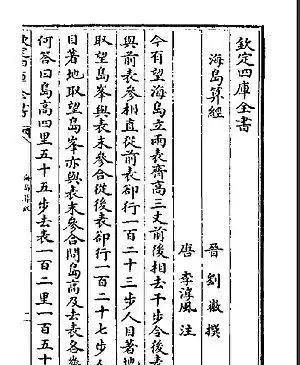 欽定四庫全書
海島算經
晉 劉徽 撰
唐 李淳風 注
今有望海島立兩表齊高三丈前後相去千步令後表
與前表參相直從前表却行一百二十三步人目著地
取望島峯與表末參合從後表却行一百二十七步人
目著地取望島峯亦與表末參合問島高及去表各
何答曰島高四里五十五步去表一百二里一百五十
欽定四庫全書
海島算經